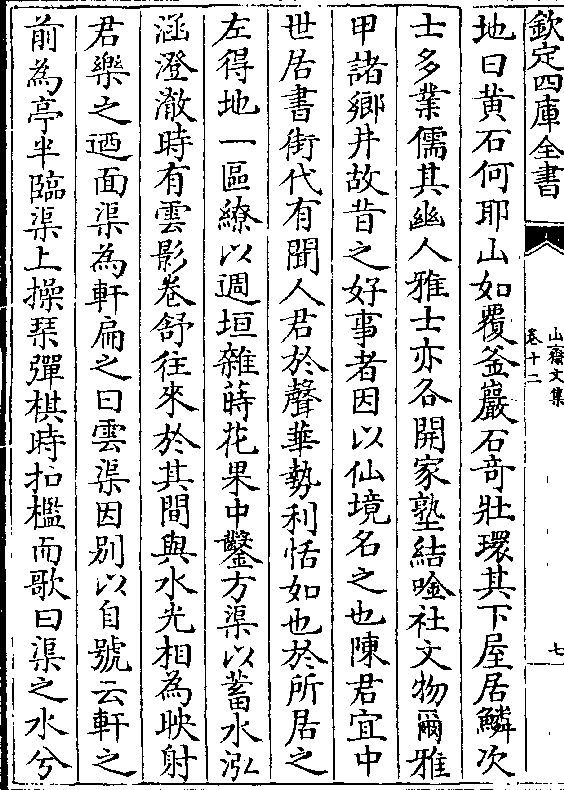 欽定四庫全書
山齋文集
卷十二
七
地曰黃石何耶山如覆釜巖石竒壯環其下屋居鱗次
士多業儒其幽人雅士亦各開家塾結唫社文物爾雅
甲諸鄉井故昔之好事者因以仙境名之也陳君宜中
世居書街代有聞人君於聲華勢利恬如也於所居之
左得地一區繚以週垣雜蒔花果中鑿方渠以蓄水泓
涵澄澈時有雲影卷舒往來於其間與水光相為映射
君樂之迺面渠為軒扁之曰雲渠因别以自號云軒之
前為亭半臨渠上操琹彈棋時扣檻而歌曰渠之水兮